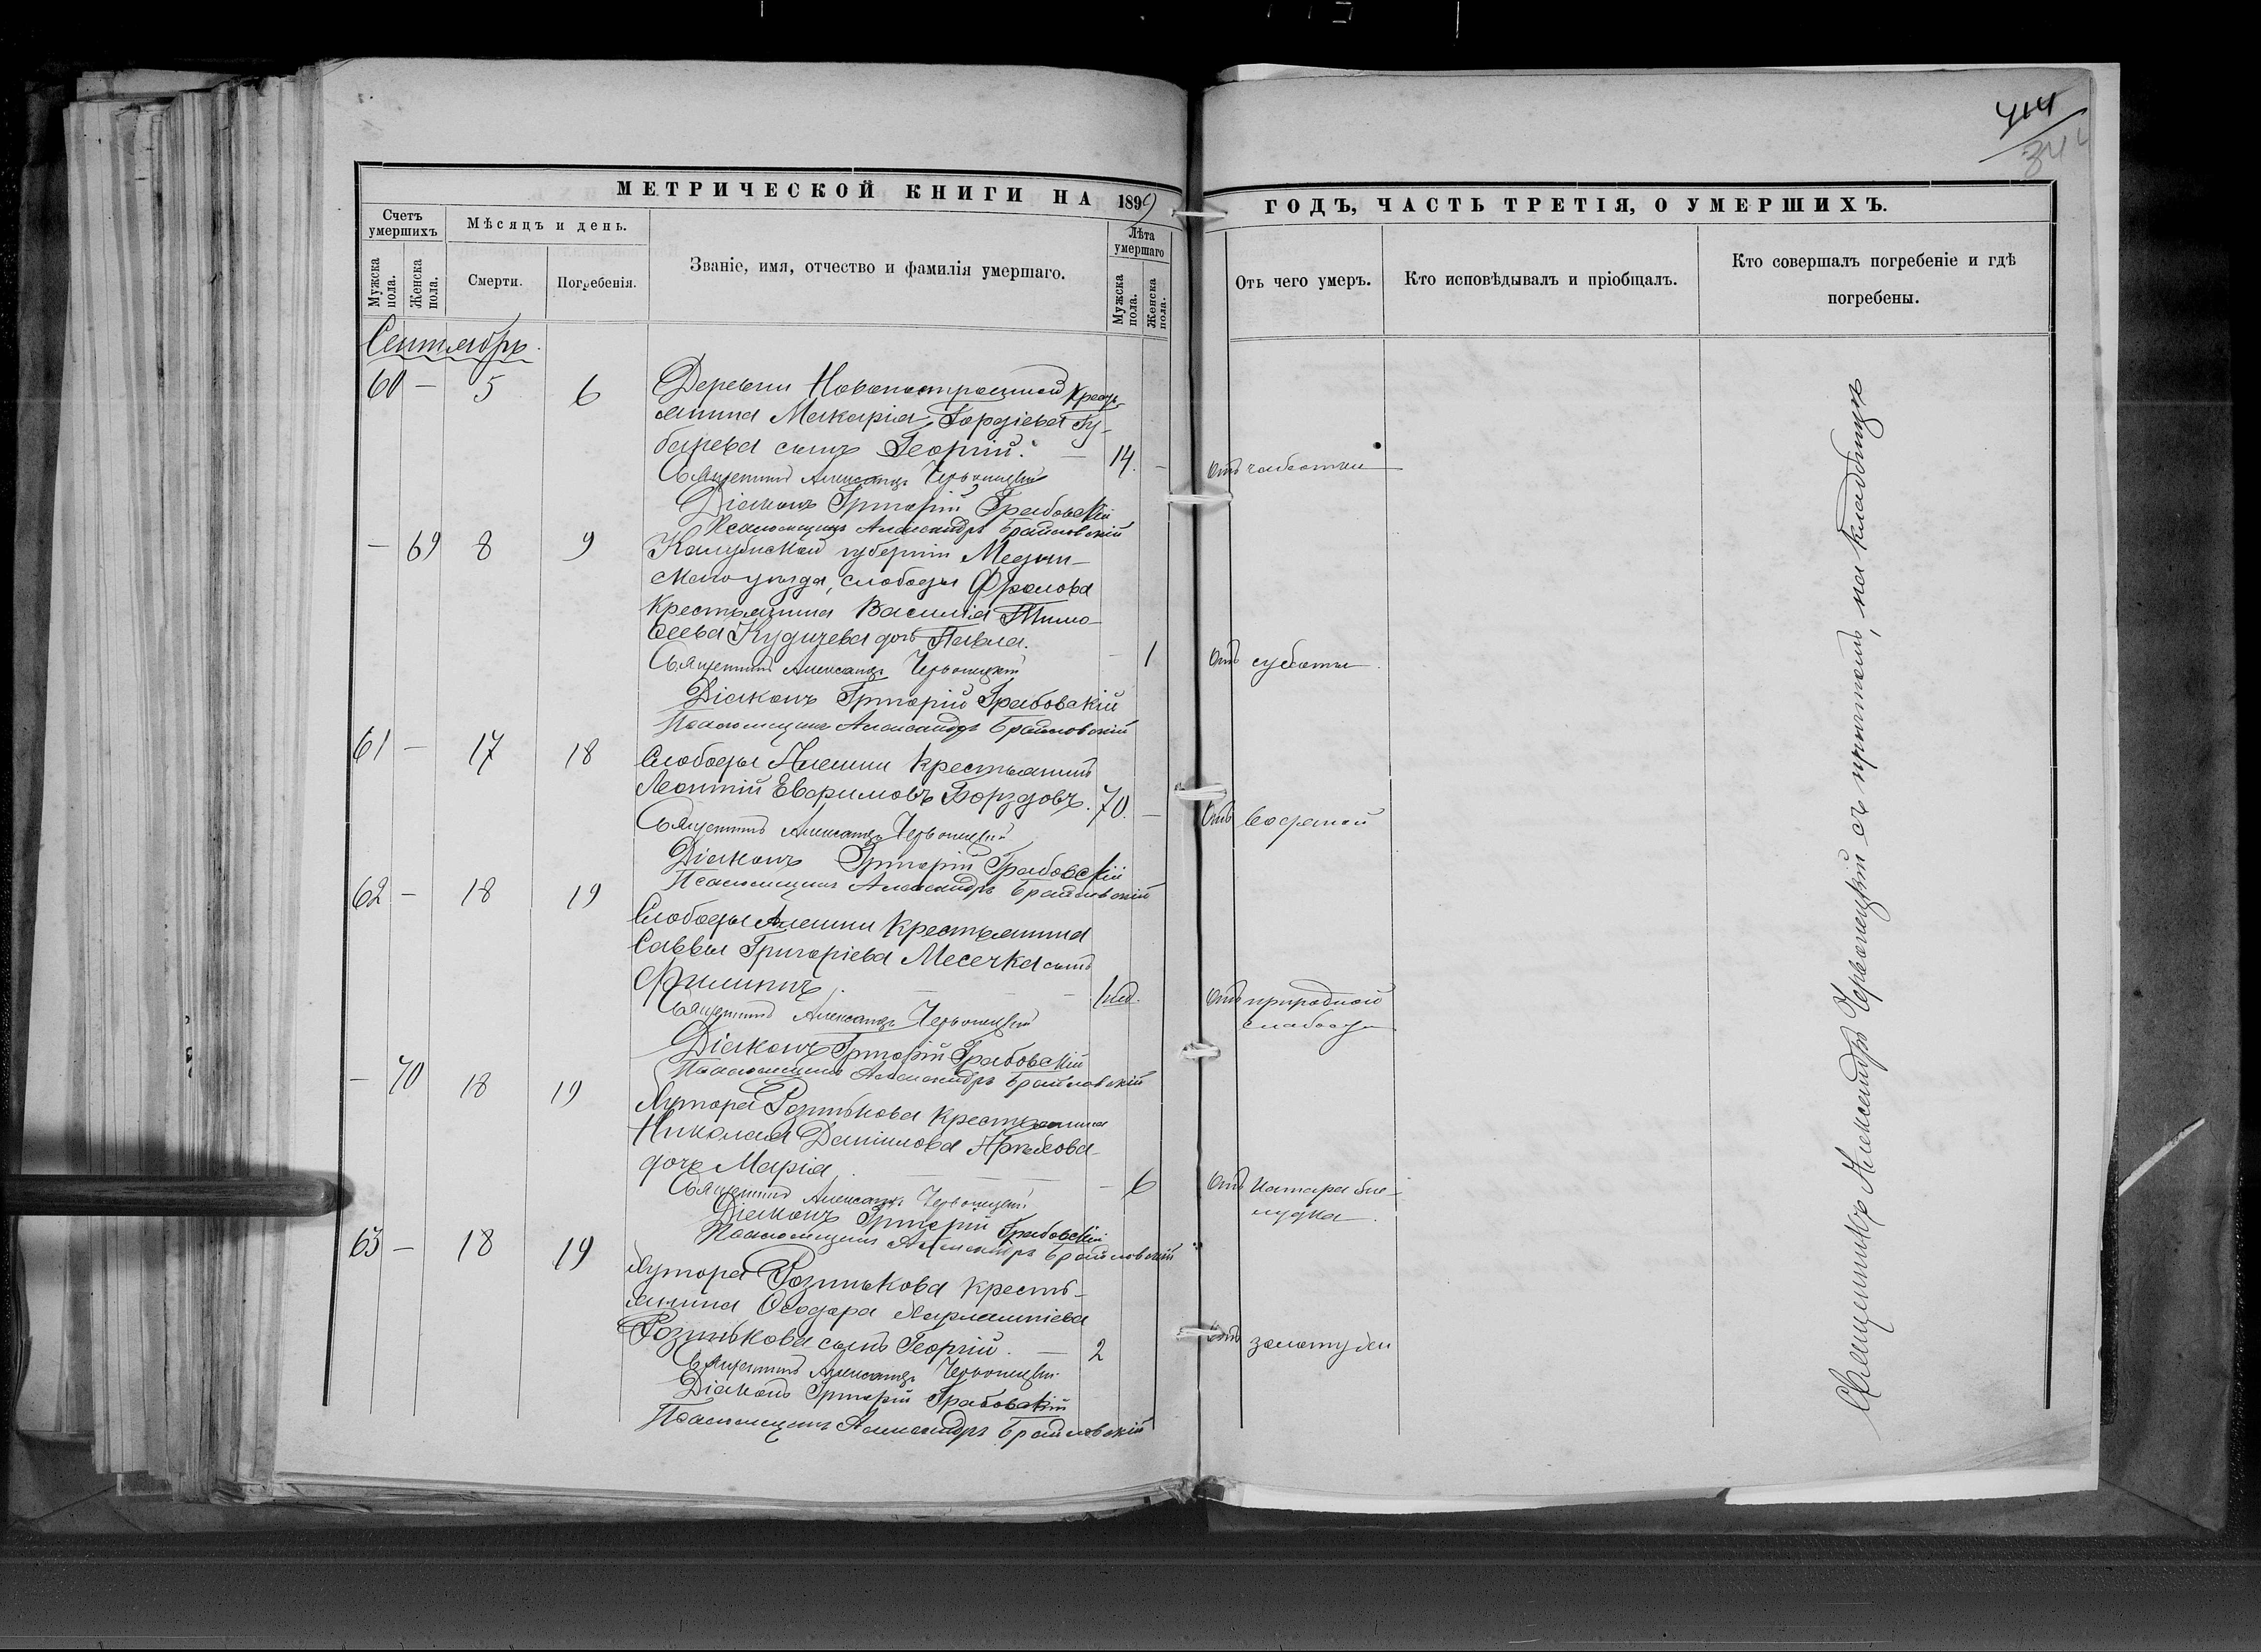 414
344
МЕТРИЧЕСКОЙ КНИГИ НА 1899
ГОДЪ, ЧАСТЬ ТРЕТІЯ, О УМЕРШИХЪ.
Счетъ умершихъ
Мужска пола.
Женска пола.
Мѣсяцъ и день.
Смерти.
Погребенія.
Званіе, имя, отчество и фамилія умершаго.
Лѣта умершаго
Мужска пола.
Женска пола.
Отъ чего умеръ.
Кто исповѣдывалъ и пріобщалъ.
Кто совершалъ погребеніе и гдѣ
погребены.
Сентябрь.
60 — 5 6 Деревни Новопостроенной кресть
янина Макарія Гордіева Гу-
барева сынъ Георгій. — 14. — Отъ чахотки
Священникъ Александръ Червонецкій
Діаконъ Григорій Грабовскій
Псаломщикъ Александръ Брайловскій
— 69 8 9 Калужской губерніи Медын-
скаго уѣзда, слободы Фролова
крестьянина Василія Тимо-
ѳеева дочь Павла. — 1 Отъ сухоты.
Священникъ Александръ Червонецкій
Діаконъ Григорій Грабовскій
Псаломщикъ Александръ Брайловскій
61 — 17 18 Слободы Алешки крестьянинъ
Леонтій Борздовъ. 70. — Отъ водяной
Священникъ Александръ Червонецкій
Діаконъ Григорій Грабовскій
Псаломщикъ Александръ Брайловскій
62 — 18 19 Слободы Алешки крестьянина
Саввы Григоріева Месечка сынъ
Филиппъ. — — 1 нед. Отъ природной
слабости
Священникъ Александръ Червонецкій
Діаконъ Григорій Грабовскій
Псаломщикъ Александръ Брайловскій
— 70 18 19 Хутора Розинькова крестьянина
Николая Даніилова
дочь Марія. — — — 6 Отъ катара же-
лудка.
Священникъ Александръ Червонецкій
Діаконъ Григорій Грабовскій
Псаломщикъ Александръ Брайловскій
63 — 18 19 Хутора Розинькова кресть-
янина Ѳеодора Харлампіева
Розинькова сынъ Георгій. — 2 Отъ золотухи
Священникъ Александръ Червонецкій
Діаконъ Григорій Грабовскій
Псаломщикъ Александръ Брайловскій
Священникъ Александръ Червонецкій съ причтомъ, на кладбищѣ